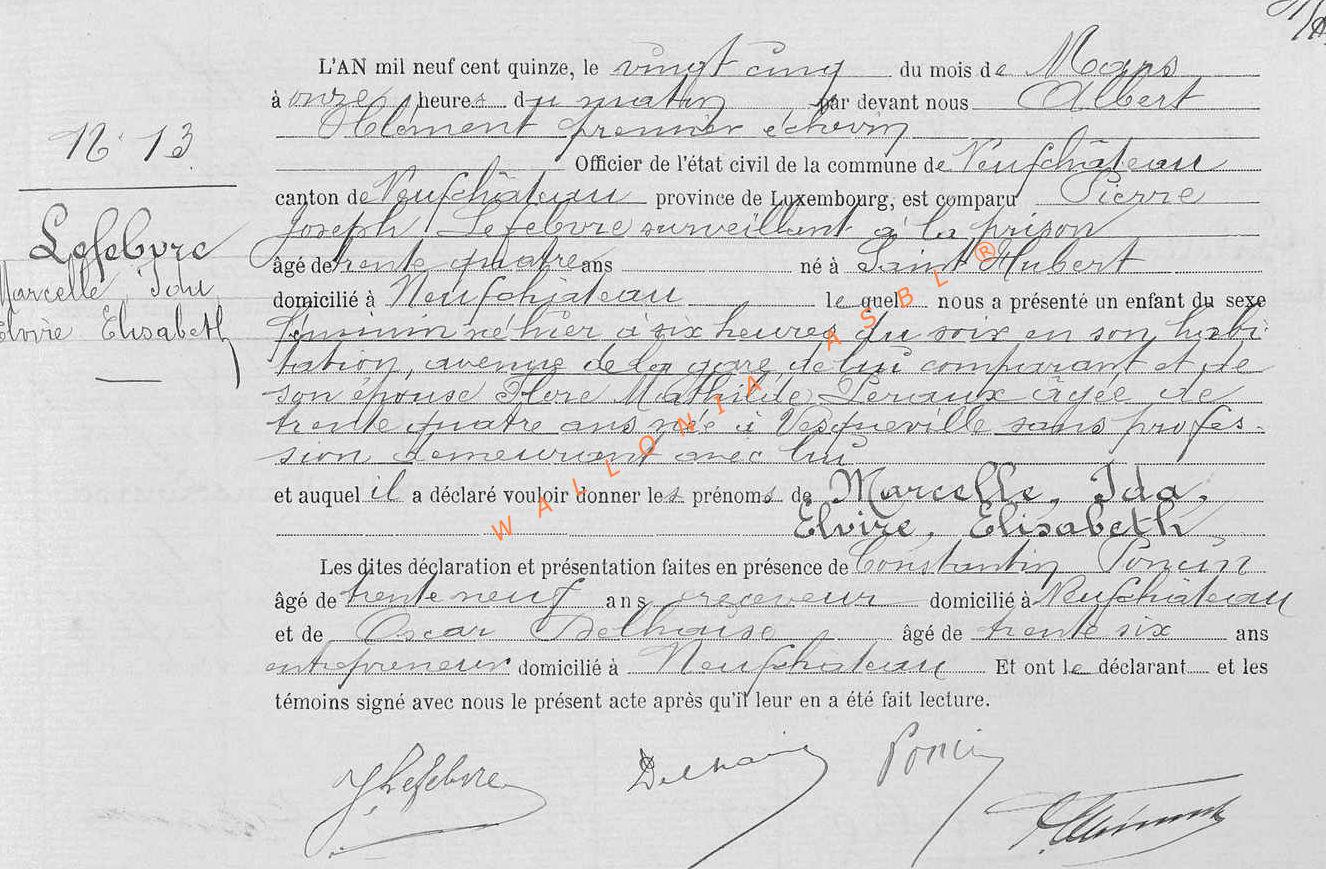 L'AN mil neuf cent quinze, le vingt cinq du mois de Mars
à onze heures du matin par devant nous Albert
Clément premier échevin
Officier de l'état civil de la commune de Neufchâteau
canton de Neufchâteau province de Luxembourg, est comparu Pierre
Joseph Lefebvre surveillant à la prison
âgé de trente quatre ans né à Saint Hubert
domicilié à Neufchateau lequel nous a présenté un enfant du sexe
féminin né hier à six heures du soir en son habi-
tation, avenue de la gare, de lui comparant et de
son épouse Flore Mathilde âgée de
trente quatre ans née à Vesqueville sans profes-
sion demeurant avec lui
et auquel il a déclaré vouloir donner les prénoms de Marcelle, Ida,
Elvire, Elisabeth
Les dites déclaration et présentation faites en présence de Constantin Poncin
âgé de trente neuf ans receveur domicilié à Neufchateau
et de Oscar Delhaise âgé de trente six ans
entrepreneur domicilié à Neufchateau Et ont le déclarant et les
témoins signé avec nous le présent acte après qu'il leur en a été fait lecture.
N° 13
Lefebvre
Marcelle, Ida,
Elvire Elisabeth
J Lefebvre Delhaise Poncin
Clément
WALLONIA ASBL ®